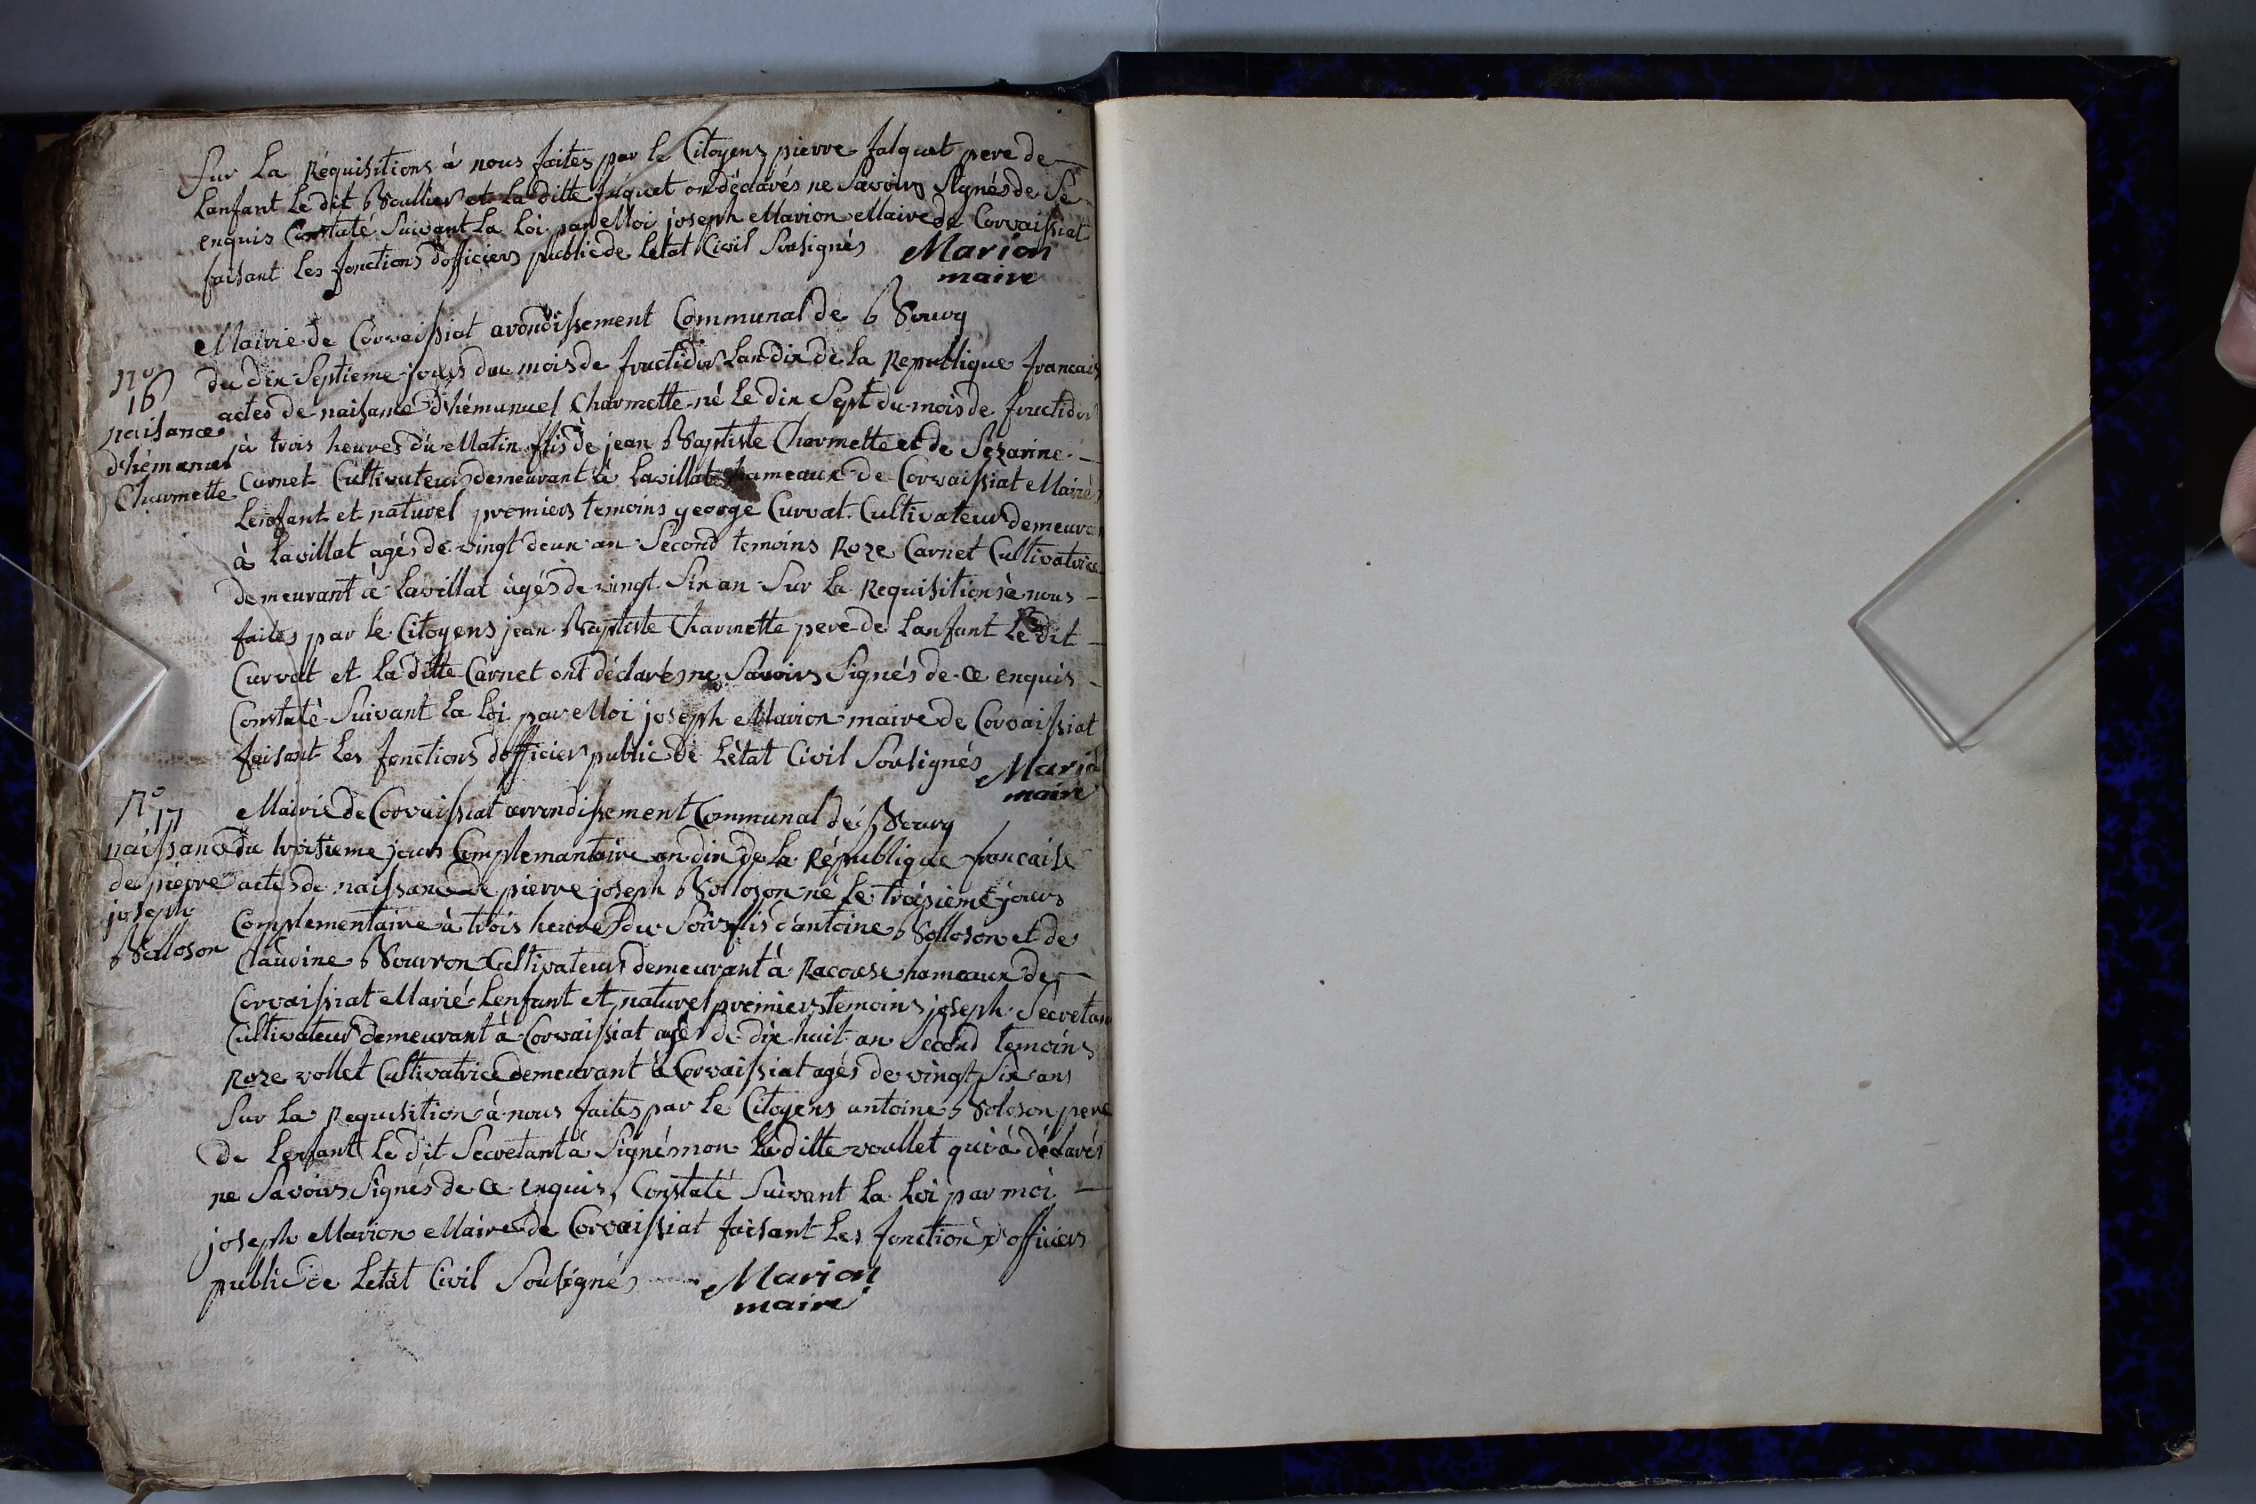 Sur La Réquisitions à nous faites par le Citoyens pierre falquet pere de
Lanfant Le dit Boullier et La ditte fuquet on déclarés ne Savoirs Signés de Se
enquis Constaté Suivant La Loi par Moi joseph Marion Maire de Corvaissiat
faisant Les fonctions d'officiers public de Letat Civil Sousignés Marion
maire
Mairie de Corvaissiat arondissement Communal de Bourg
du dix Septieme jours du mois de fructidor Lan dix de la Republique francais
n.o
16
naisance
d'hémanuel
Charmette
actes de naisance d'hémanuel Charmette né Le dix Sept du mois de fructidor
à trois heures du Matin flis de jean Baptiste Charmette et de Sezarine
Carnet Cultivateurs demeurant à Lavillat hameaux de Corvaissiat Mairés
Lenfant et naturel premiers temoins george Curvat Cultivateur demeuran
à Lavillat agés de vingt deux an Second temoins Roze Carnet Cultivatrice
demeurant à Lavillat agés de vingt Six an Sur La Requisition à nous
faites par le Citoyens jean Baptiste Charmette pere de Lanfant Le dit
Curvat et La ditte Carnet ont déclarés ne Savoirs Signés de Ce enquis
Constaté Suivant La Loi par Moi joseph Marion maire de Corvaissiat
faisant Les fonctions d'officiers public de Létat Civil Sousignés Marion
maire
n.o
17
naissance
de pierre
joseph
Bolloson
Mairie de Corvaissiat arrondissement Communal de Bourg
du troisieme jours Complemantaire an dix de La République francaise
actes de naissance de pierre joseph Bolloson né Le troisieme jours
Complementaire à trois heures du Soir flis d'antoine Bolloson et de
Claudine Bourron Cultivateurs demeurant à Racouse hameaux de
Corvaissiat Marié Lenfant et naturel premiers temoins joseph Secretan
Cultivateur demeurant à Corvaissiat agés de dix huit an Second temoins
Roze vollet Cultivatrice demeurant à Corvaissiat agés de vingt Six ans
Sur La Requisition à nous faites par Le Citoyens antoine Boloson pere
de Lenfant Le dit Secretant à Signé non La ditte voullet qui à déclarés
ne Savoirs Signés de Ce enquis, Constaté Suivant La Loi par moi
joseph Marion Maire de Corvaissiat faisant Les fonction d'officiers
public de Letat Civil Sousignés Marion
maire